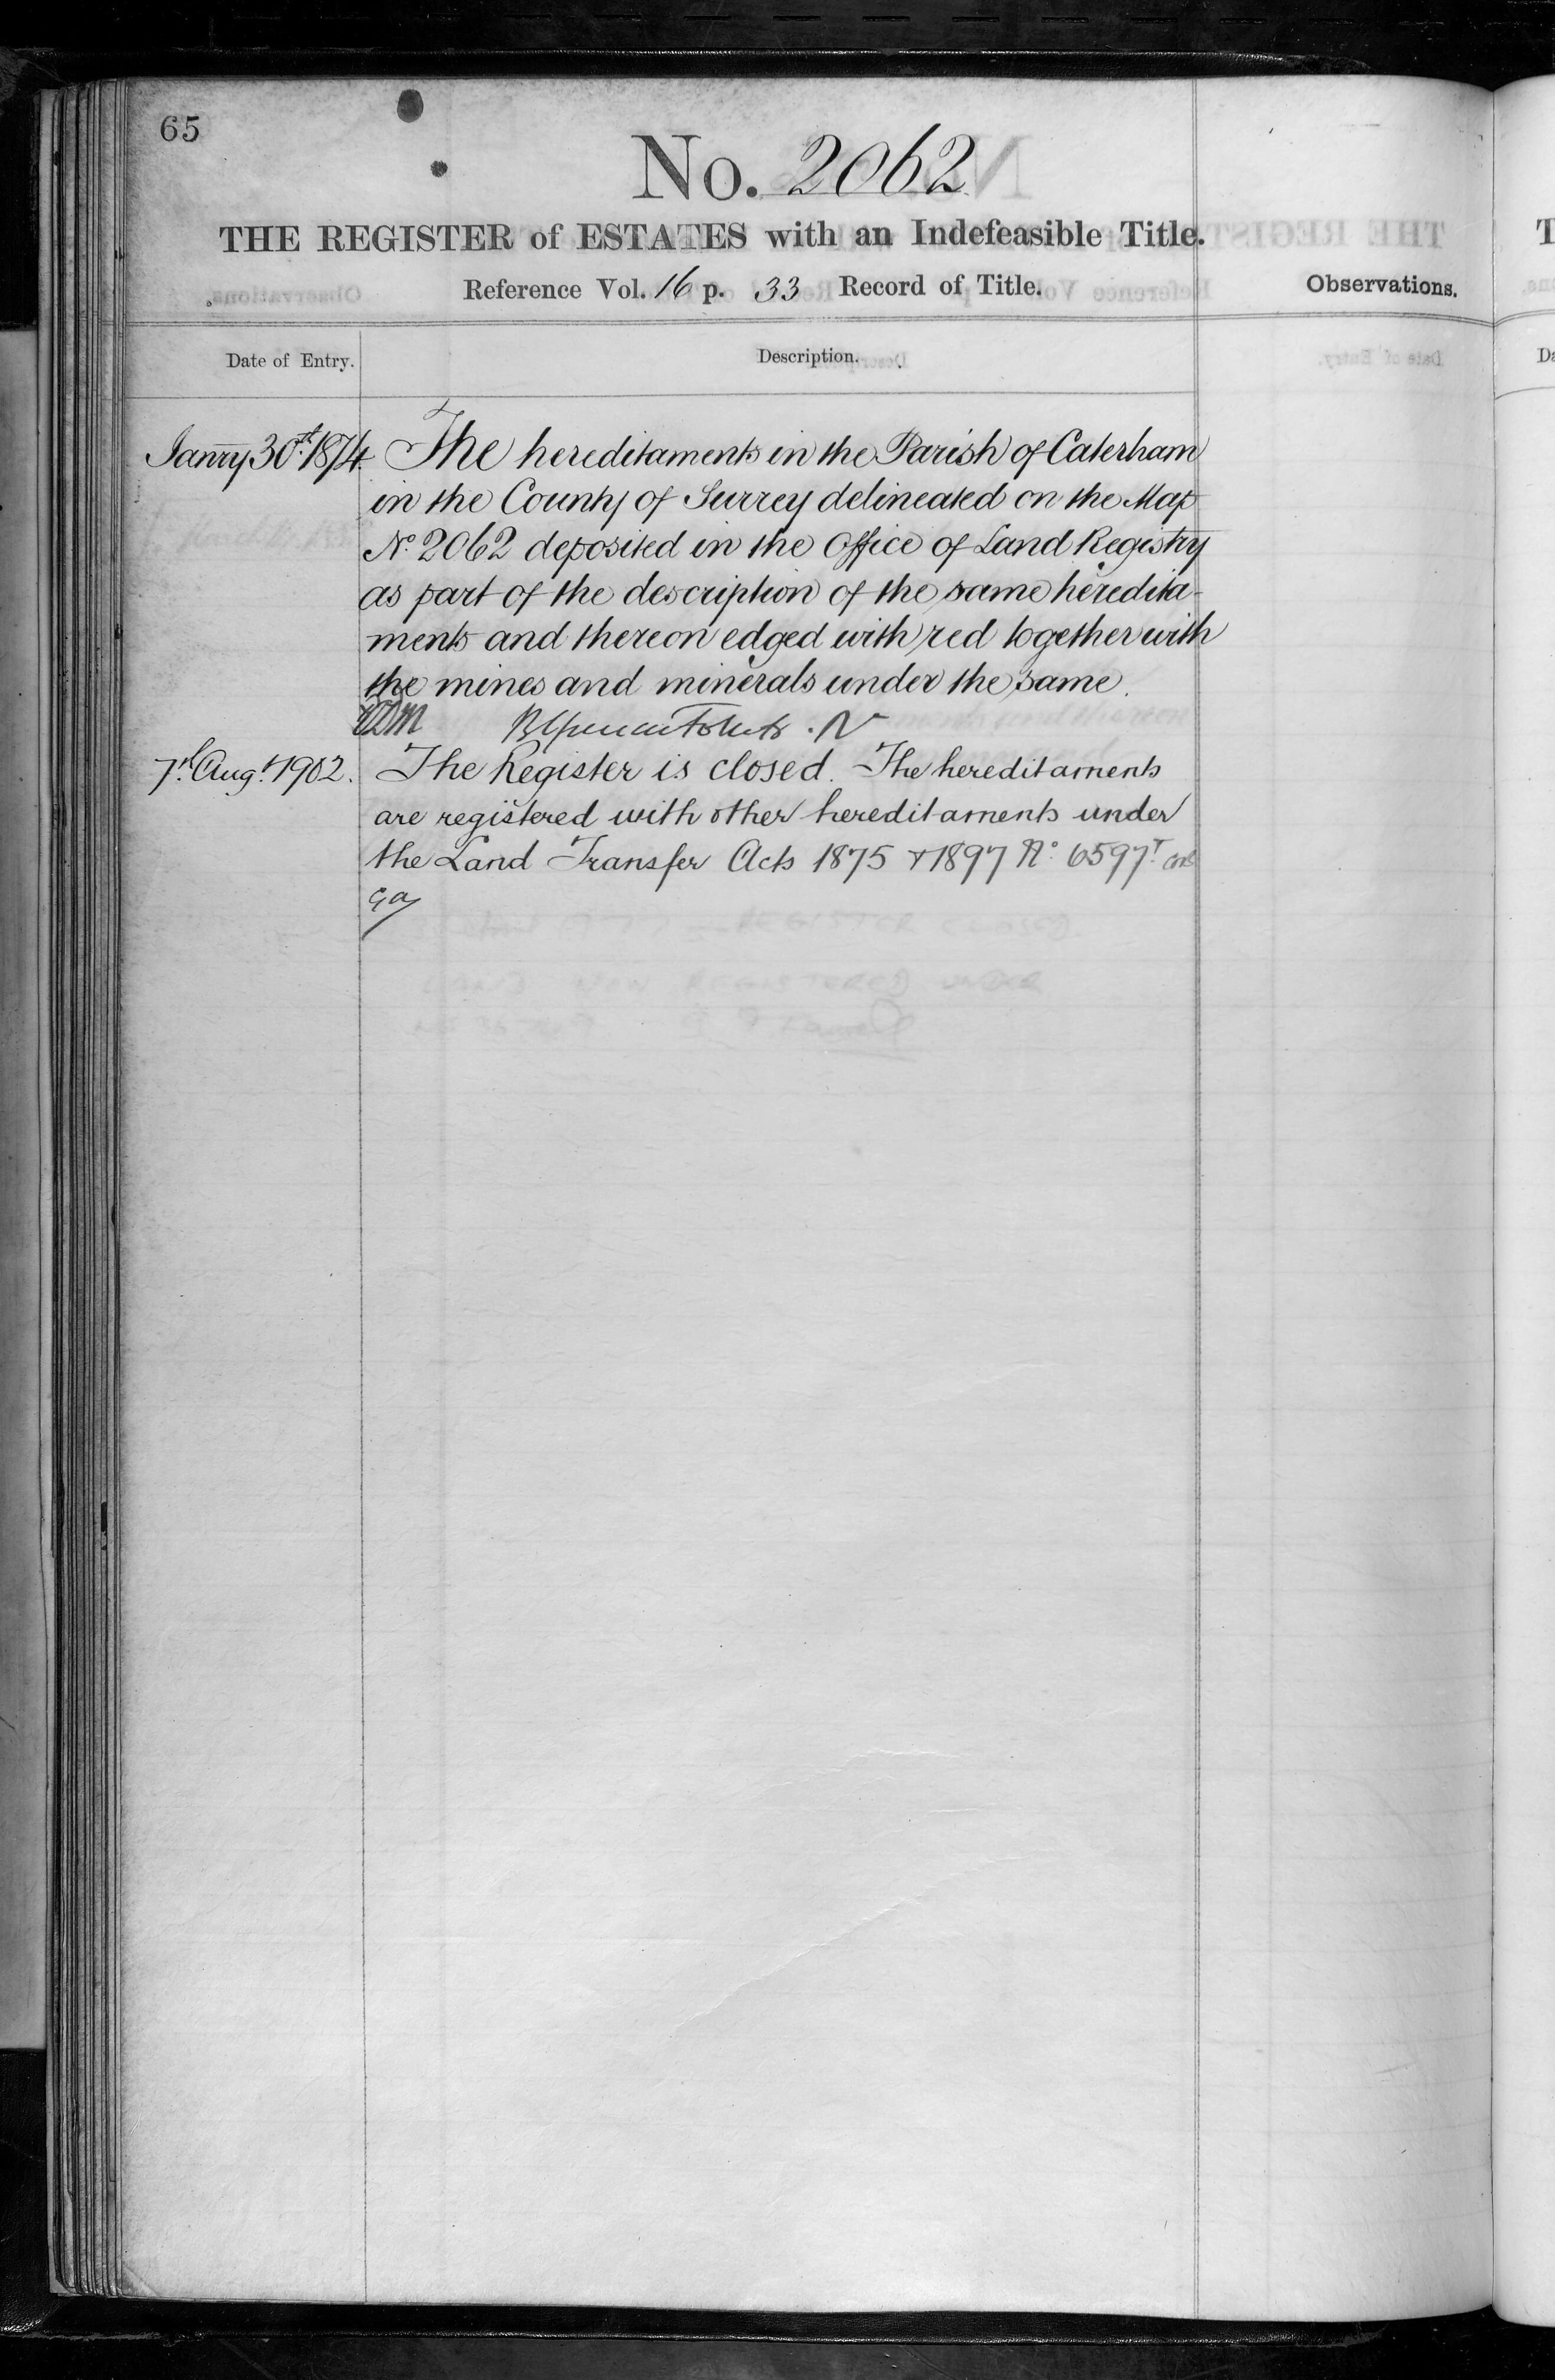 65
No. 2062
THE REGISTER of ESTATES with an Indefeasible Title.
Reference Vol. 16 p. 33 Record of Title.
Observations.
Date of Entry.
Description.
Janry 30th 1874. The hereditaments in the Parish of Caterham
in the County of Surrey delineated on the Map
No. 2062 deposited in the Office of Land Registry
as part of the description of the same heredita-
ments and thereon edged with red together with
the mines and minerals under the same.
7th Augt 1902. The Register is closed. The hereditaments
are registered with other hereditaments under
the Land Transfer Acts 1875 & 1897 No. 6597